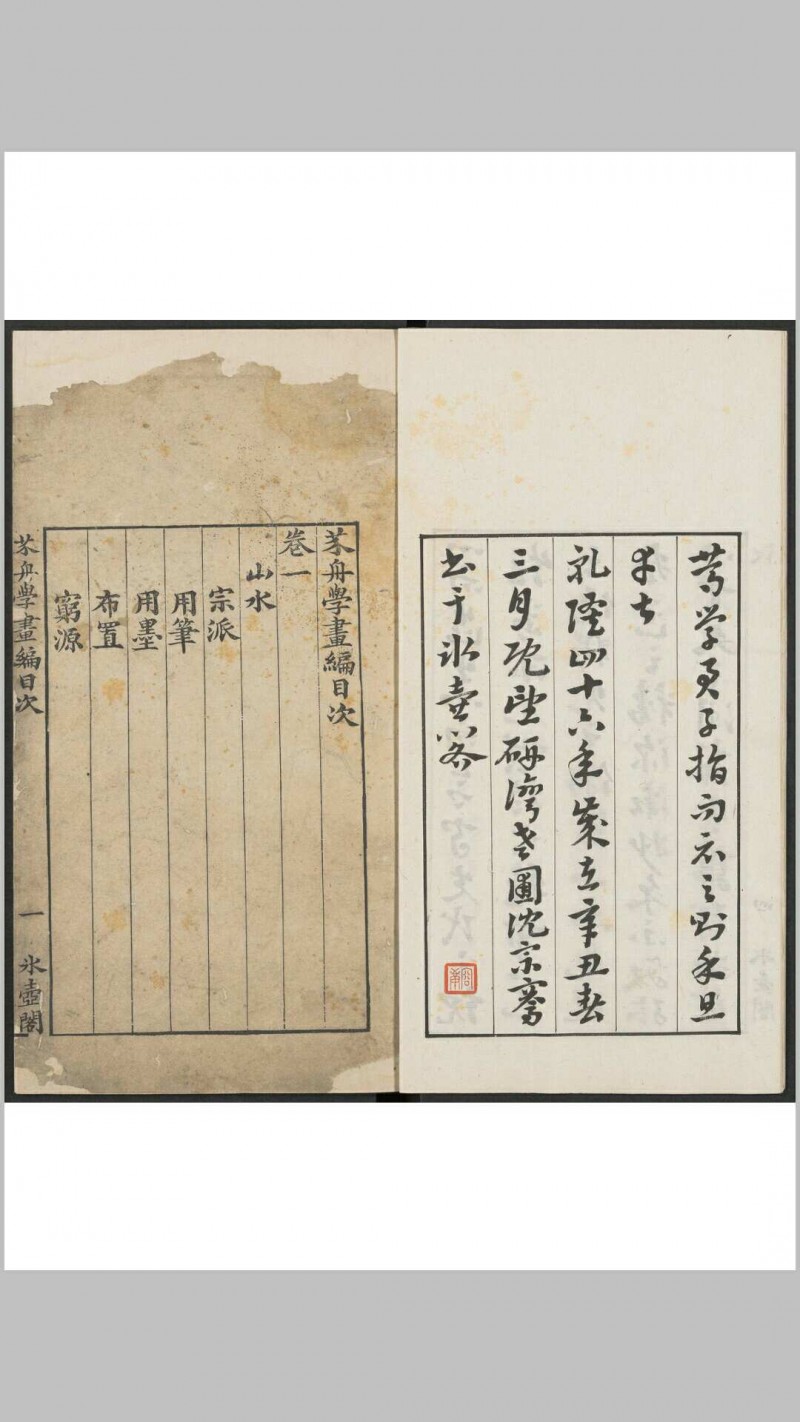 学君子指而示之則余且
乾隆四十六年歲在辛丑春
三月既望研灣老圃沈宗騫
书于冰壺閣
芥舟學畫編目次
卷一
山水
宗派
用筆
用墨
布置
窮源
芥舟學畫編目次
一
冰壺閣